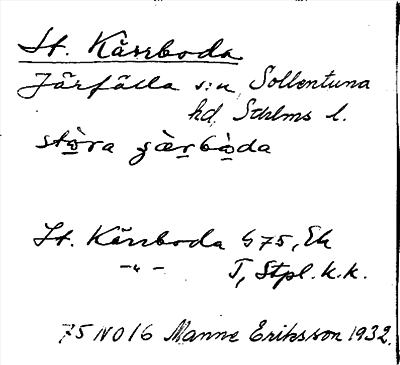 St. Kärrboda
Järfälla s:n, Sollentuna
hd, Sthlms l.
stòra çä̀rbòda
St. Kärrboda G 75, Ek
-"- T, Stpl. k.k.
75 NO 16 Manne Eriksson 1932.